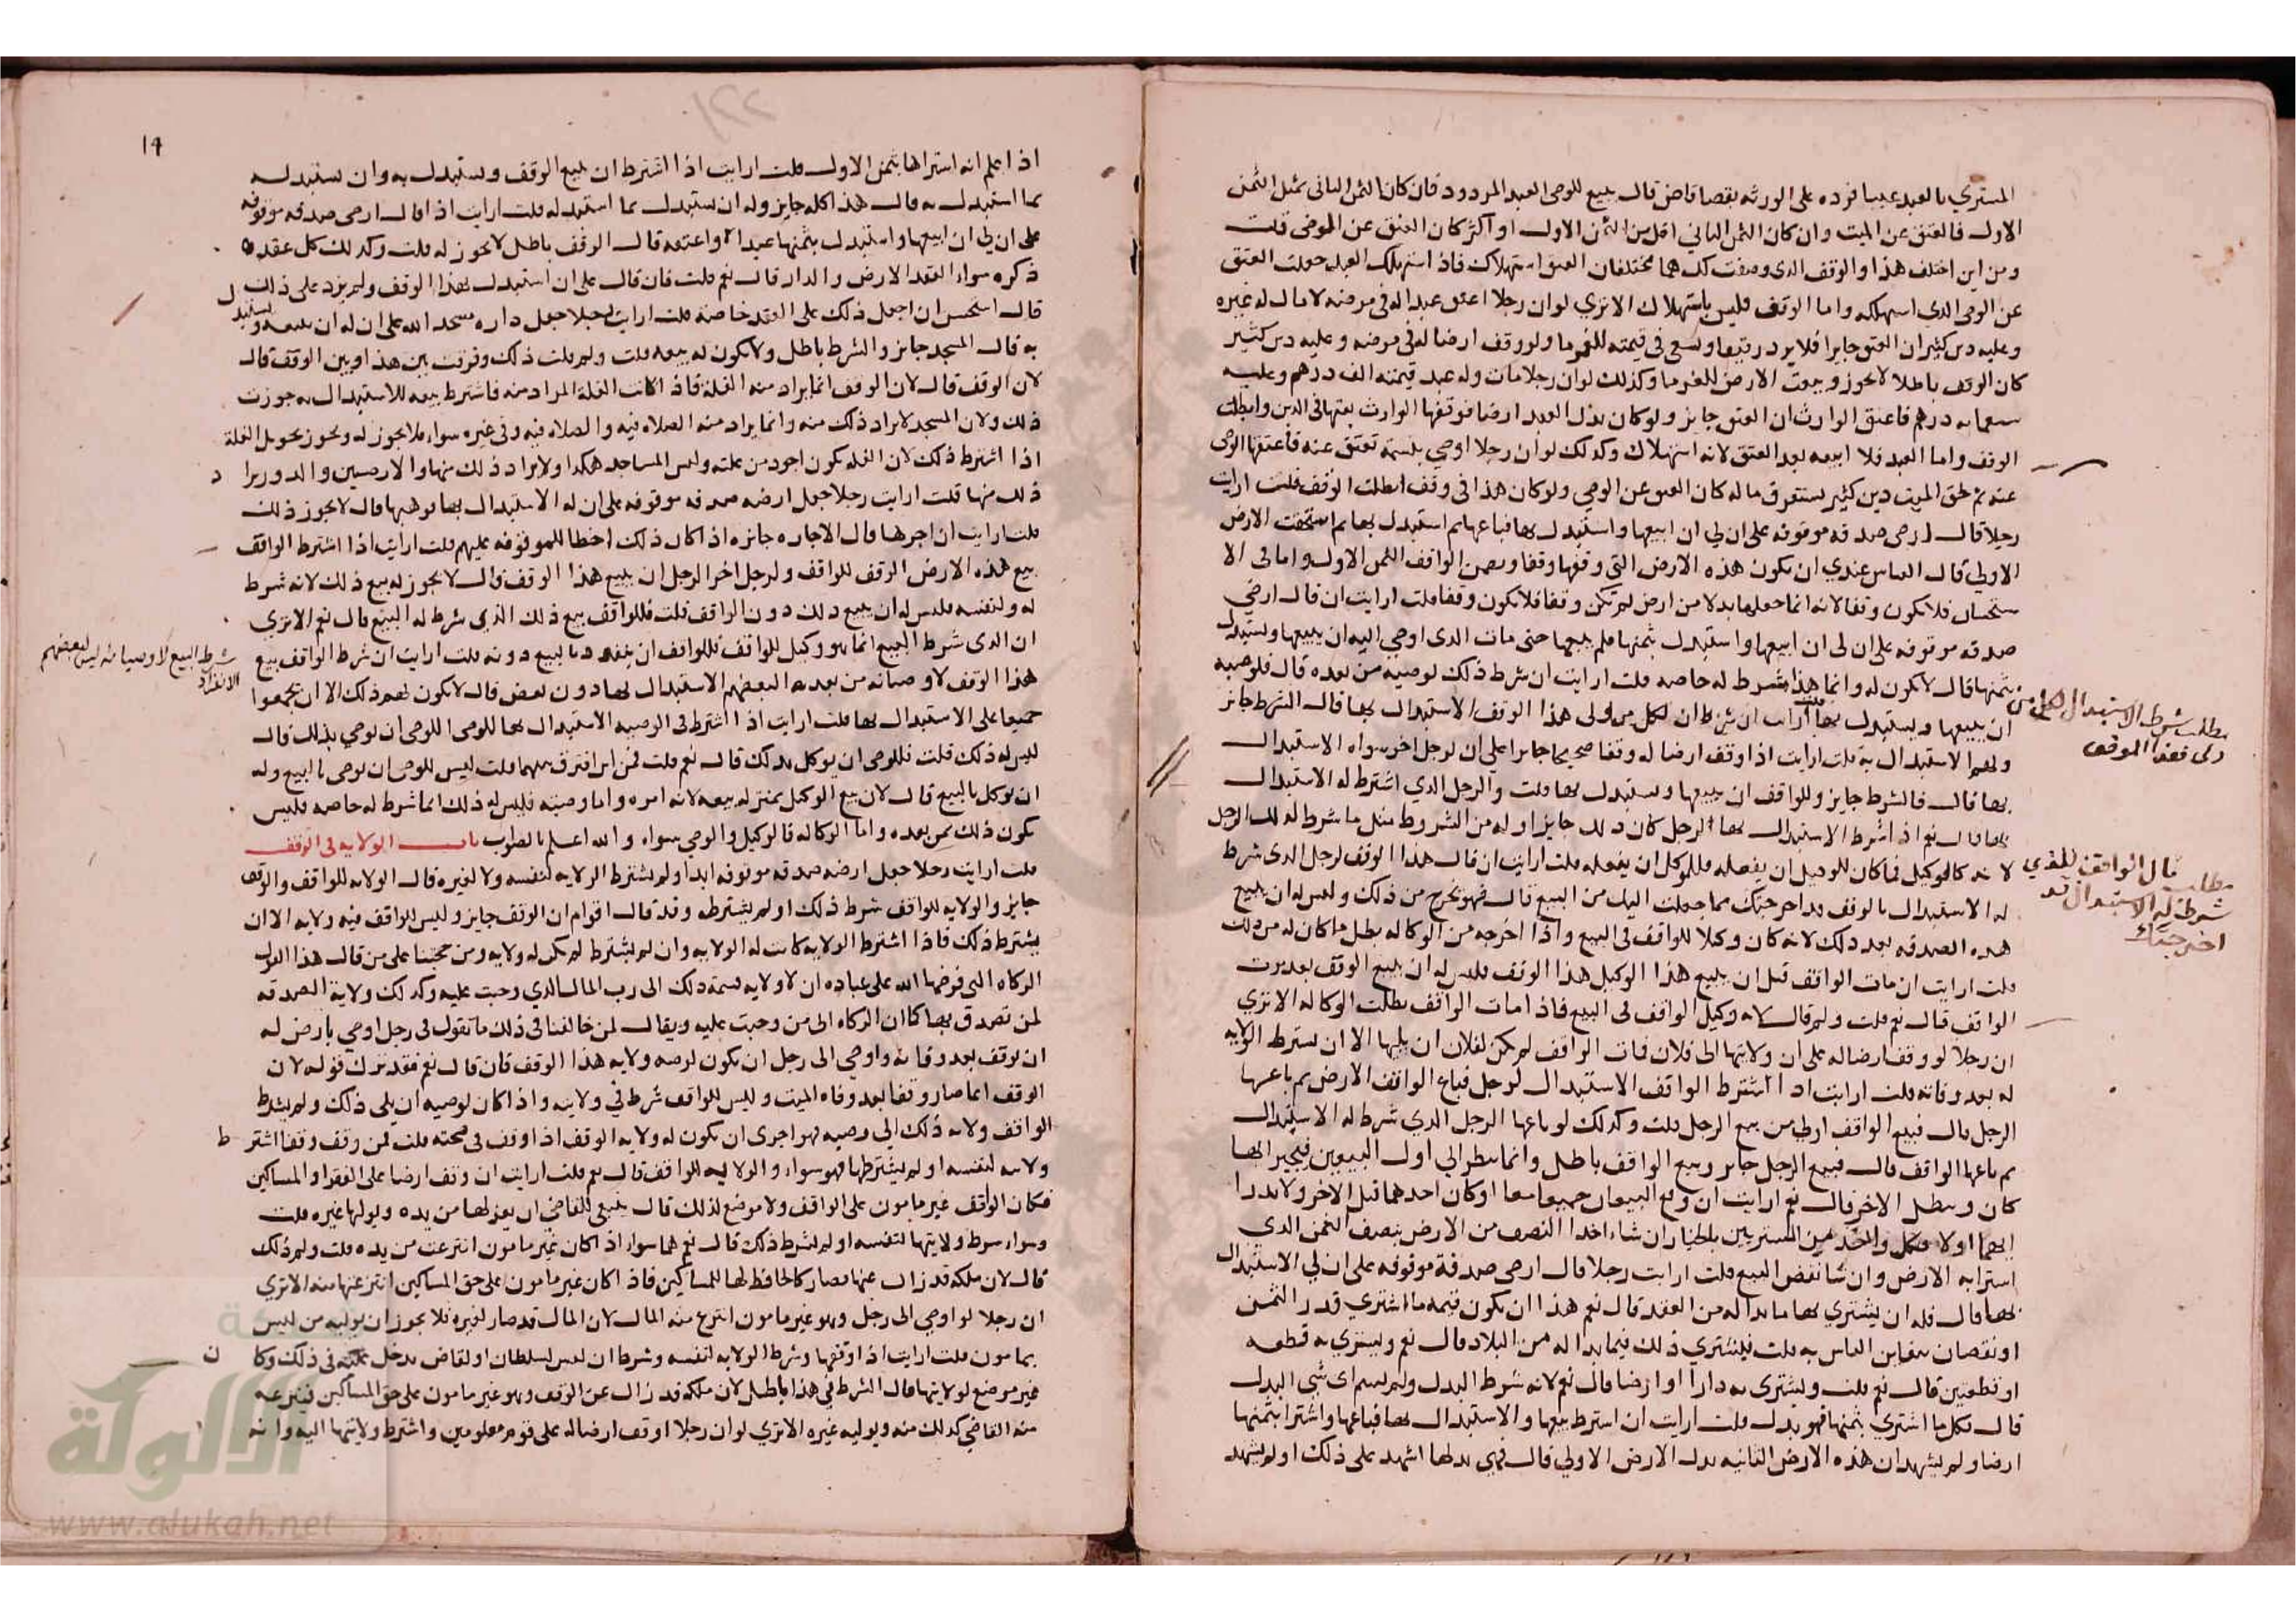 المشتري بالعبد عيبا فرده على الورثه بقضا قاض قال يبيع الوصي العبد المردود فان كان الثمن الثاني مثل الثمن
الاول فالعتق عن الميت وان كان الثمن الثاني اقل من الثمن الاول او اكثر كان العتق عن الموصي قلت
ومن اين اختلف هذا والوقف الذي وصفت لك هما مختلفان العتق استهلاك فاذا استهلك العبد جعلت العتق
عن الوصي الذي استهلكه واما الوقف فليس باستهلاك الا تري لو ان رجلا اعتق عبدا له في مرضه لا مال له غيره
وعليه دين كثير ان العتق جايز فلا يرد رقيقا ويسعى في قيمته للغرما ولو وقف ارضا له في مرضه وعليه دين كثير
كان الوقف باطلا لا يجوز وبيعت الارض للغرما وكذلك لو ان رجلا مات وله عبد قيمته الف درهم وعليه
سعمايه درهم فاعتق الوارث ان العتق جايز ولو كان بدل العبد ارضا فوقفها الوارث بعتها في الدين وابطلت
الوقف واما العبد فلا ابيعه بعد العتق لانه استهلاك وكذلك لو ان رجلا اوصي بنسمة تعتق عنه فاعتقها الوصي
عنه ثم لحق الميت دين كثير يستغرق ماله كان العتق عن الوصي ولو كان هذا في وقف ابطلت الوقف قلت ارايت
رجلا قال ارضي صدقه موقوفه على ان لي ان ابيعها واستبدل بها فباعها ثم استبدل بها ثم استحقت الارض
الاولي قال القياس عندي ان تكون هذه الارض التي وقفها وقفا ويضمن الواقف الثمن الاول واما في الا
ستحسان فلا تكون وقفا لانه انما جعلها بدلا من ارض لم تكن وقفا فلا تكون وقفا قلت ارايت ان قال ارضي
صدقه موقوفه على ان لي ان ابيعها واستبدل بثمنها فلم يبيعها حتى مات الذي اوصي اليه ان يبيعها ويستبدل
بثمنها قال لا يكون له وانما هذا شرط له خاصه قلت ارايت ان شرط ذلك لوصيه من بعده قال فلوصيه
ان يبيعها ويستبدل بها قلت ارايت ان شرط ان لكل من ولي هذا الوقف الاستبدال بها قال الشرط جايز
ولهم الاستبدال به قلت ارايت اذا وقف ارضا له وقفا صحيحا جايزا على ان لرجل اخر سواه الاستبدال
بها قال فالشرط جايز وللواقف ان يبيعها ويستبدل بها قلت والرجل الذي اشترط له الاستبدال
بها قال نعم اذا شرط الاستبدال بها الرجل كان ذلك جايزا وله من الشروط مثل ما شرط له لذلك الرجل
لانه كالوكيل فما كان للوكيل ان يفعله فللموكل ان يفعله قلت ارايت ان قال هذا الوقف لرجل الذي شرط
له الاستبدال بالوقف قد اخرجتك مما جعلت اليك من البيع قال فهو يخرج من ذلك وليس له ان يبيع
هذه الصدقه بعد ذلك لانه كان وكيلا للواقف في البيع واذا اخرجه من الوكاله بطل ما كان له من ذلك
قلت ارايت ان مات الواقف قبل ان يبيع هذا الوكيل هذا الوقف فليس له ان يبيع الوقف بعد موت
الواقف قال نعم قلت ولم قال لانه وكيل الواقف في البيع فاذا مات الواقف بطلت الوكاله الا تري
ان رجلا لو وقف ارضا له على ان ولايتها الى فلان فمات الواقف لم يكن لفلان ان يليها الا ان يشترط الولايه
له بعد وفاته قلت ارايت اذا اشترط الواقف الاستبدال لرجل فباع الواقف الارض ثم باعها
الرجل قال فبيع الواقف اولى من بيع الرجل قلت وكذلك لو باعها الرجل الذي شرط له الاستبدال
ثم باعها الواقف قال فبيع الرجل جايز وبيع الواقف باطل وانما ينظر الي اول البيعين فيجيز ايهما
كان ويبطل الاخر قال نعم ارايت ان وقع البيعان جميعا معا او كان احدهما قبل الاخر ولا يدرا
ايهما اولا فكل واحد من المشتريين بالخيار ان شاء اخذ النصف من الارض بنصف الثمن الذي
اشترا به الارض وان شا نقض البيع قلت ارايت رجلا قال ارضي صدقة موقوفه على ان لي الاستبدال
بها قال فله ان يشتري بها ما بدا له من العقد قال نعم هذا ان يكون قيمه ما اشتري قدر الثمن
او نقصان يتغابن الناس به قلت فيشتري ذلك فيما بدا له من البلاد قال نعم ويشتري به قطعه
او قطعتين قال نعم قلت ويشتري به دارا او ارضا قال نعم لانه شرط البدل ولم يسم اي شي البدل
قال فكل ما اشتري بثمنها فهو بدل قلت ارايت ان اشترط بيعها والاستبدال بها فباعها واشترا بثمنها
ارضا ولم يشهد ان هذه الارض الثانيه بدل الارض الاولي قال فهي بدلها اشهد على ذلك او لم يشهد
مطلب شرط الاستبدال لكل من
ولي هذا الوقف
مطلب قال الواقف للذي
شرط له الاستبدال قد
اخرجتك
14
اذا علم انه اشتراها بثمن الاول قلت ارايت اذا اشترط ان يبيع الوقف ويستبدل به وان يستبدل
بما استبدل به قال هذا كله جايز وله ان يستبدل بما استبدله قلت ارايت اذا قال ارضي صدقه موقوفه
على ان لي ان ابيعها واستبدل بثمنها عبدا او اعتقه قال الوقف باطل لا يجوز له قلت وكذلك كل عقده
ذكره سواء العقد الارض والدار قال نعم قلت فان قال على ان استبدل بهذا الوقف ولم يزد على ذلك
قال استحسن ان اجعل ذلك على العقد خاصه قلت ارايت رجلا جعل داره مسجد الله على ان له ان يبيعه ويستبدل
به قال المسجد جايز والشرط باطل ولا يكون له بيعه قلت ولم قلت ذلك وفرقت بين هذا وبين الوقف قال
لان الوقف قال لان الوقف انما يراد منه الغلة فاذا كانت الغلة المراد منه فاشترط بيعه للاستبدال به جوزت
ذلك ولان المسجد لا يراد ذلك منه وانما يراد منه الصلاه فيه والصلاه فيه وفي غيره سواء فلا يجوز له ويجوز تحويل الغلة
اذا اشترط ذلك لان الغله تكون اجود من غلته وليس المساجد هكذا ولا يراد ذلك منها والارضين والدور يراد
ذلك منها قلت ارايت رجلا جعل ارضه صدقه موقوفه على ان له الاستبدال بها فوهبها قال لا يجوز ذلك
قلت ارايت ان اجرها قال الاجاره جايزه اذا كان ذلك احظا للموقوفه عليهم قلت ارايت اذا اشترط الواقف
بيع هذه الارض الوقف للواقف ولرجل اخر الرجل ان يبيع هذا الوقف قال لا يجوز له بيع ذلك لانه شرط
له ولنفسه فليس له ان يبيع ذلك دون الواقف قلت فللواقف بيع ذلك الذي شرط له البيع قال نعم الا تري
ان الذي شرط البيع انما هو وكيل للواقف فللواقف ان ينفرد بالبيع دونه قلت ارايت ان شرط الواقف بيع
هذا الوقف لاوصيائه من بعده البعضهم الاستبدال بها دون بعض قال لا يكون لهم ذلك الا ان يجمعوا
جميعا على الاستبدال بها قلت ارايت اذا اشترط في الوصيه الاستبدال بها للوصي اللوصي ان يوصي بذلك قال
ليس له ذلك قلت فللوصي ان يوكل بذلك قال نعم قلت فمن اين افترق بينهما قلت ليس للوصي ان يوصي بالبيع وله
ان يوكل بالبيع قال لان بيع الوكيل بمنزله بيعه لانه امره واما وصيته فليس له ذلك انما شرط له خاصه فليس
يكون ذلك لمن بعده واما الوكاله فالوكيل والوصي سواء والله اعلم بالصواب باب الولايه في الوقف
قلت ارايت رجلا جعل ارضه صدقه موقوفه ابدا ولم يشترط الولايه لنفسه ولا لغيره قال الولايه للواقف والوقف
جايز والولايه للواقف شرط ذلك او لم يشترطه وقد قال اقوام ان الوقف جايز وليس للواقف فيه ولايه الا ان
يشترط ذلك فاذا اشترط الولايه كانت له الولايه وان لم يشترط لم يكن له ولايه ومن حجتنا على من قال هذا القول
الزكاه التي فرضها الله على عباده ان لا ولايه قسمة ذلك الى رب المال الذي وجبت عليه وكذلك ولاية الصدقه
لمن تصدق بها كما ان الزكاه الى من وجبت عليه ويقال لمن خالفنا في ذلك ما تقول في رجل اوصي بارض له
ان توقف بعد وفاته واوصي الى رجل ان يكون لوصيه ولايه هذا الوقف فان قال نعم فقد ترك قوله لان
الوقف انما صار وقفا بعد وفاه الميت وليس للواقف شرط في ولايته واذا كان لوصيه ان يلي ذلك ولم يشترط
الواقف ولايه ذلك الي وصيه فهو احرى ان يكون له ولايه الوقف اذا وقف في صحته قلت فمن وقف وقفا اشترط
ولايته لنفسه او لم يشترطها فهو سواء والولايه للواقف قال نعم قلت ارايت ان وقف ارضا على الفقرا والمساكين
فكان الواقف غير مامون على الواقف ولا موضع لذلك قال ينبغي للقاضي ان يعزلها من يده ويوليها غيره قلت
وسواء شرط ولايتها لنفسه او لم يشترط ذلك قال نعم هما سواء اذا كان غير مامون انتزعت من يده قلت ولم ذلك
قال لان ملكه قد زال عنها فصار كالحافظ لها للمساكين فاذا كان غير مامون على حق المساكين انتزعتها منه الا تري
ان رجلا لو اوصي الى رجل وهو غير مامون انتزع منه المال لان المال قد صار لغيره فلا يجوز ان يوليه من ليس
بمامون قلت ارايت اذا وقفها وشرط الولايه لنفسه وشرط ان ليس لسلطان او لقاض يدخل عليه في ذلك وكان
غير موضع لولايتها قال الشرط في هذا باطل لان ملكه قد زال عن الوقف وهو غير مامون على حق المساكين فينتزعه
منه القاضي كذلك منه ويوليه غيره الا تري لو ان رجلا اوقف ارضا له على قوم معلومين واشترط ولايتها اليه وانه
شرط البيع لاوصيائه ليس لبعضهم
الانفراد
الألوكة
www.alukah.net